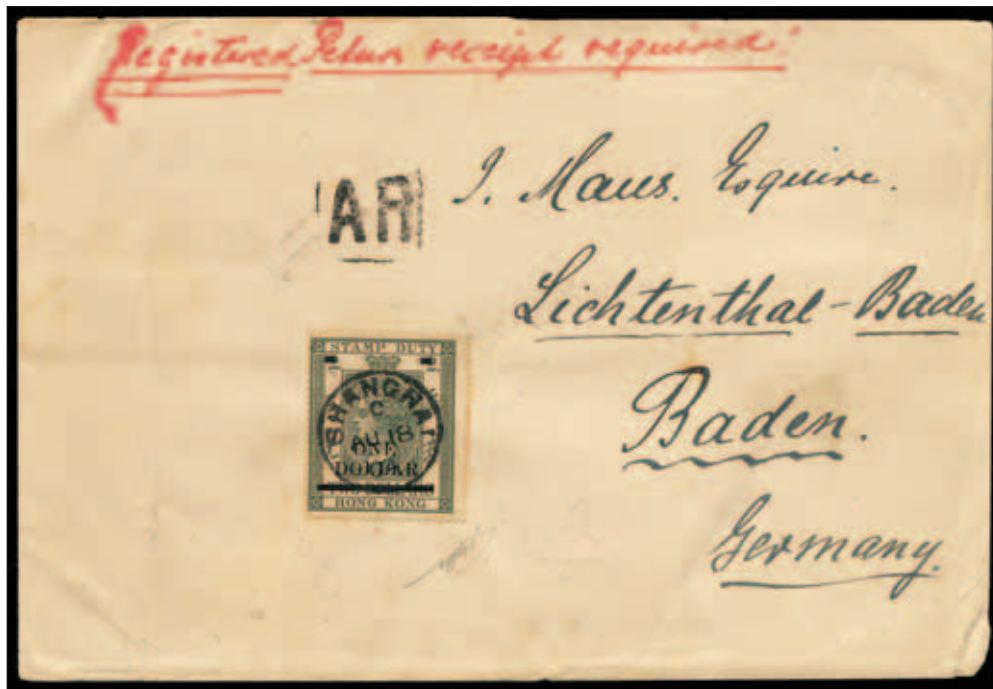 "Registered Return receipt required"
AR
I. Maus. Esquire.
Lichtenthal-Baden
Baden.
Germany.
STAMP DUTY
SHANGHAI
C
AU 18
ONE
DOLLAR
HONG KONG